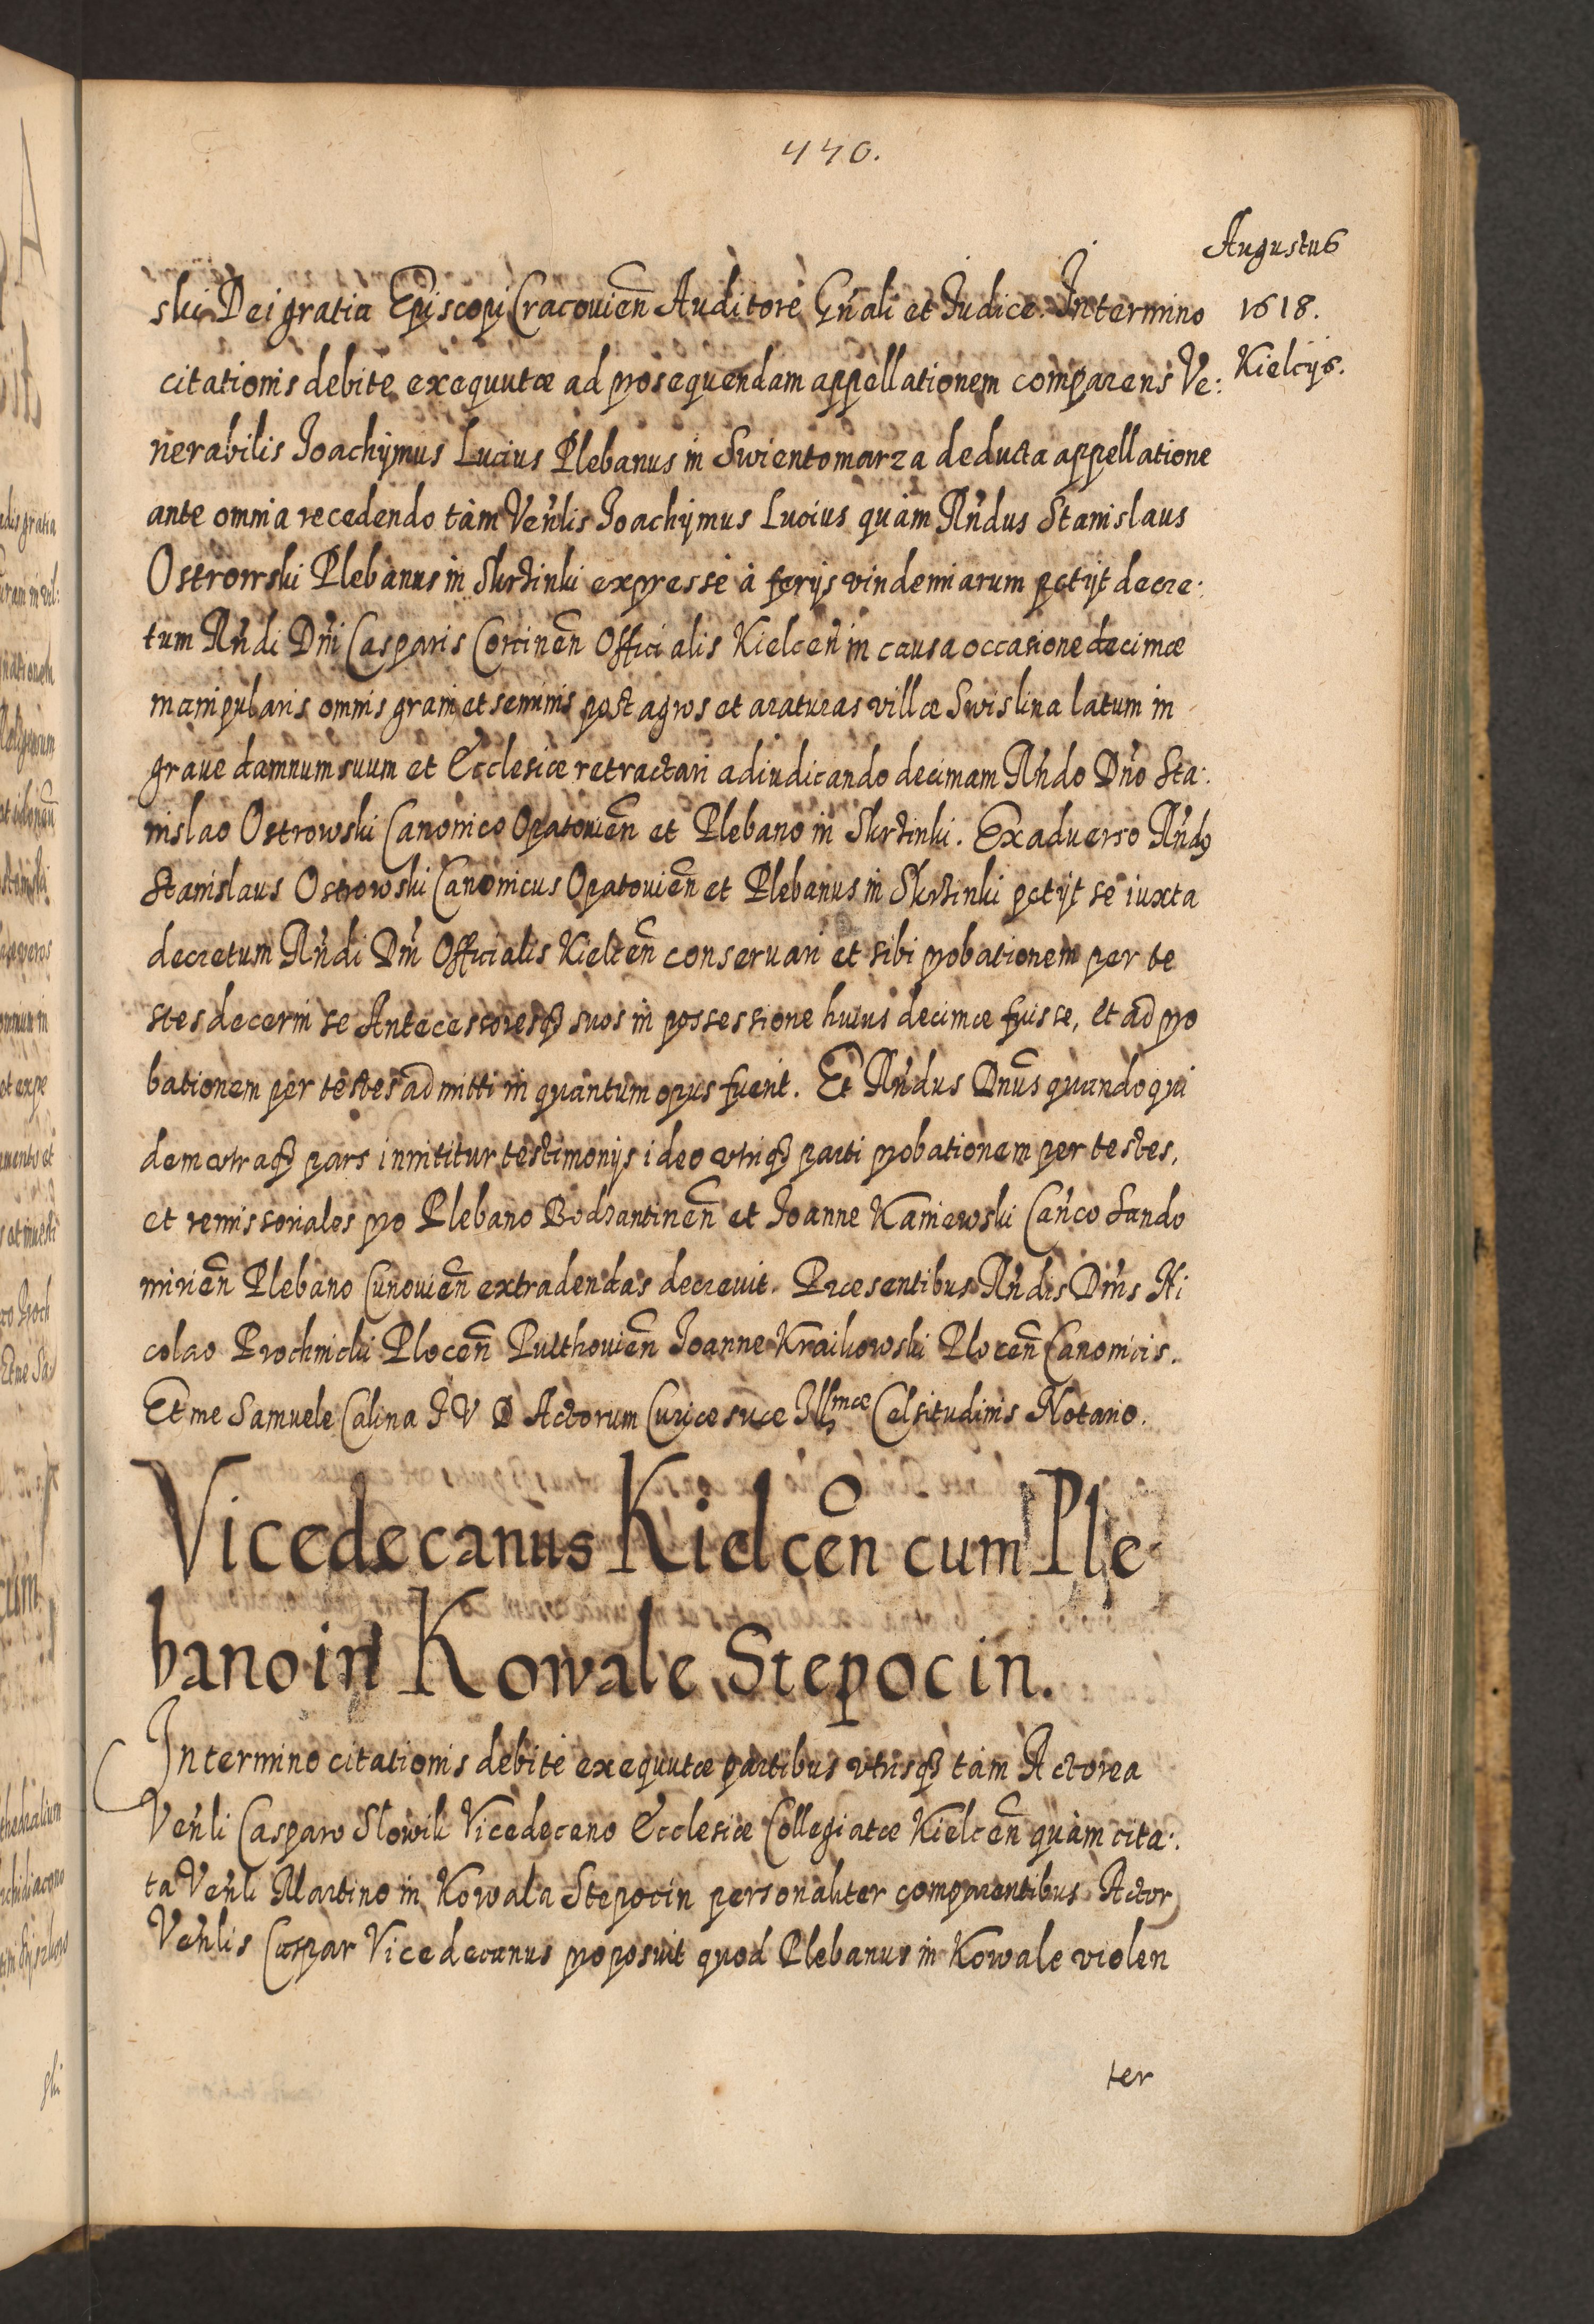 440.
Augustus
1618.
Kielcijs.
ski Dei gratia Episcopi Cracouien̄ Auditore Gn̄ali et Iudice. In termino
citationis debite exequutæ ad prosequendam appellationem comparens Ve:
nerabilis Ioachymus Lucius Plebanus in Swientomarza deducta appellatione
ante omnia recedendo tàm Ven̄lis Ioachymus Lucius quàm Rn̄dus Stanislaus
Ostrowski Plebanus in Skrzinki expresse à ferijs vindemiarum petijt decre:
tum Rn̄di Dn̄i Casparis Corcinen̄ Officialis Kielcen̄ in causa occasione decimæ
manipularis omnis grani et seminis post agros et araturas villæ Swislina latum in
graue damnum suum et Ecclesiæ retractari adiudicando decimam Rn̄do Dn̄o Sta:
nislao Ostrowski Canonico Opatouien̄ et Plebano in Skrzinki. Ex aduerso Rn̄dꝫ
Stanislaus Ostrowski Canonicus Opatouien̄ et Plebanus in Skrzinki petijt se iuxta
decretum Rn̄di Dn̄i Officialis Kielcen̄ conseruari et sibi probationem per te
stes decerni se Antecessoresqꝫ suos in possessione huius decimæ fuisse, et ad pro
bationem per testes admitti in quantum opus fuerit. Et Rn̄dus Dn̄us quandoqui
dem utraqꝫ pars innititur testimonijs ideo utriqꝫ parti probationem per testes,
et remissoriales pro Plebano Bodzantinen̄ et Ioanne Kaniewski Can̄co Sando
mirien̄ Plebano Cunouien̄ extradendas decreuit. Præsentibus Rn̄dis Dn̄is Ni
colao Prochnicki Plocen̄ Pulthouien̄ Ioanne Kraikowski Plocen̄ Canonicis.
Et me Samuele Calina I V D Actorum Curiæ suæ Illmæ Celsitudinis Notario.
Vicedecanus Kielcen̄ cum Ple
bano in Kowale Stepocin.
In termino citationis debite exequutæ partibus vtrisqꝫ tàm Actorea
Ven̄li Casparo Slowik Vicedecano Ecclesiæ Collegiatæ Kielcen̄ quàm cita:
ta Ven̄li Martino in Kowala Stepocin personaliter comparentibus Actor
Ven̄lis Caspar Vicedecanus proposuit quod Plebanus in Kowale violen
ter